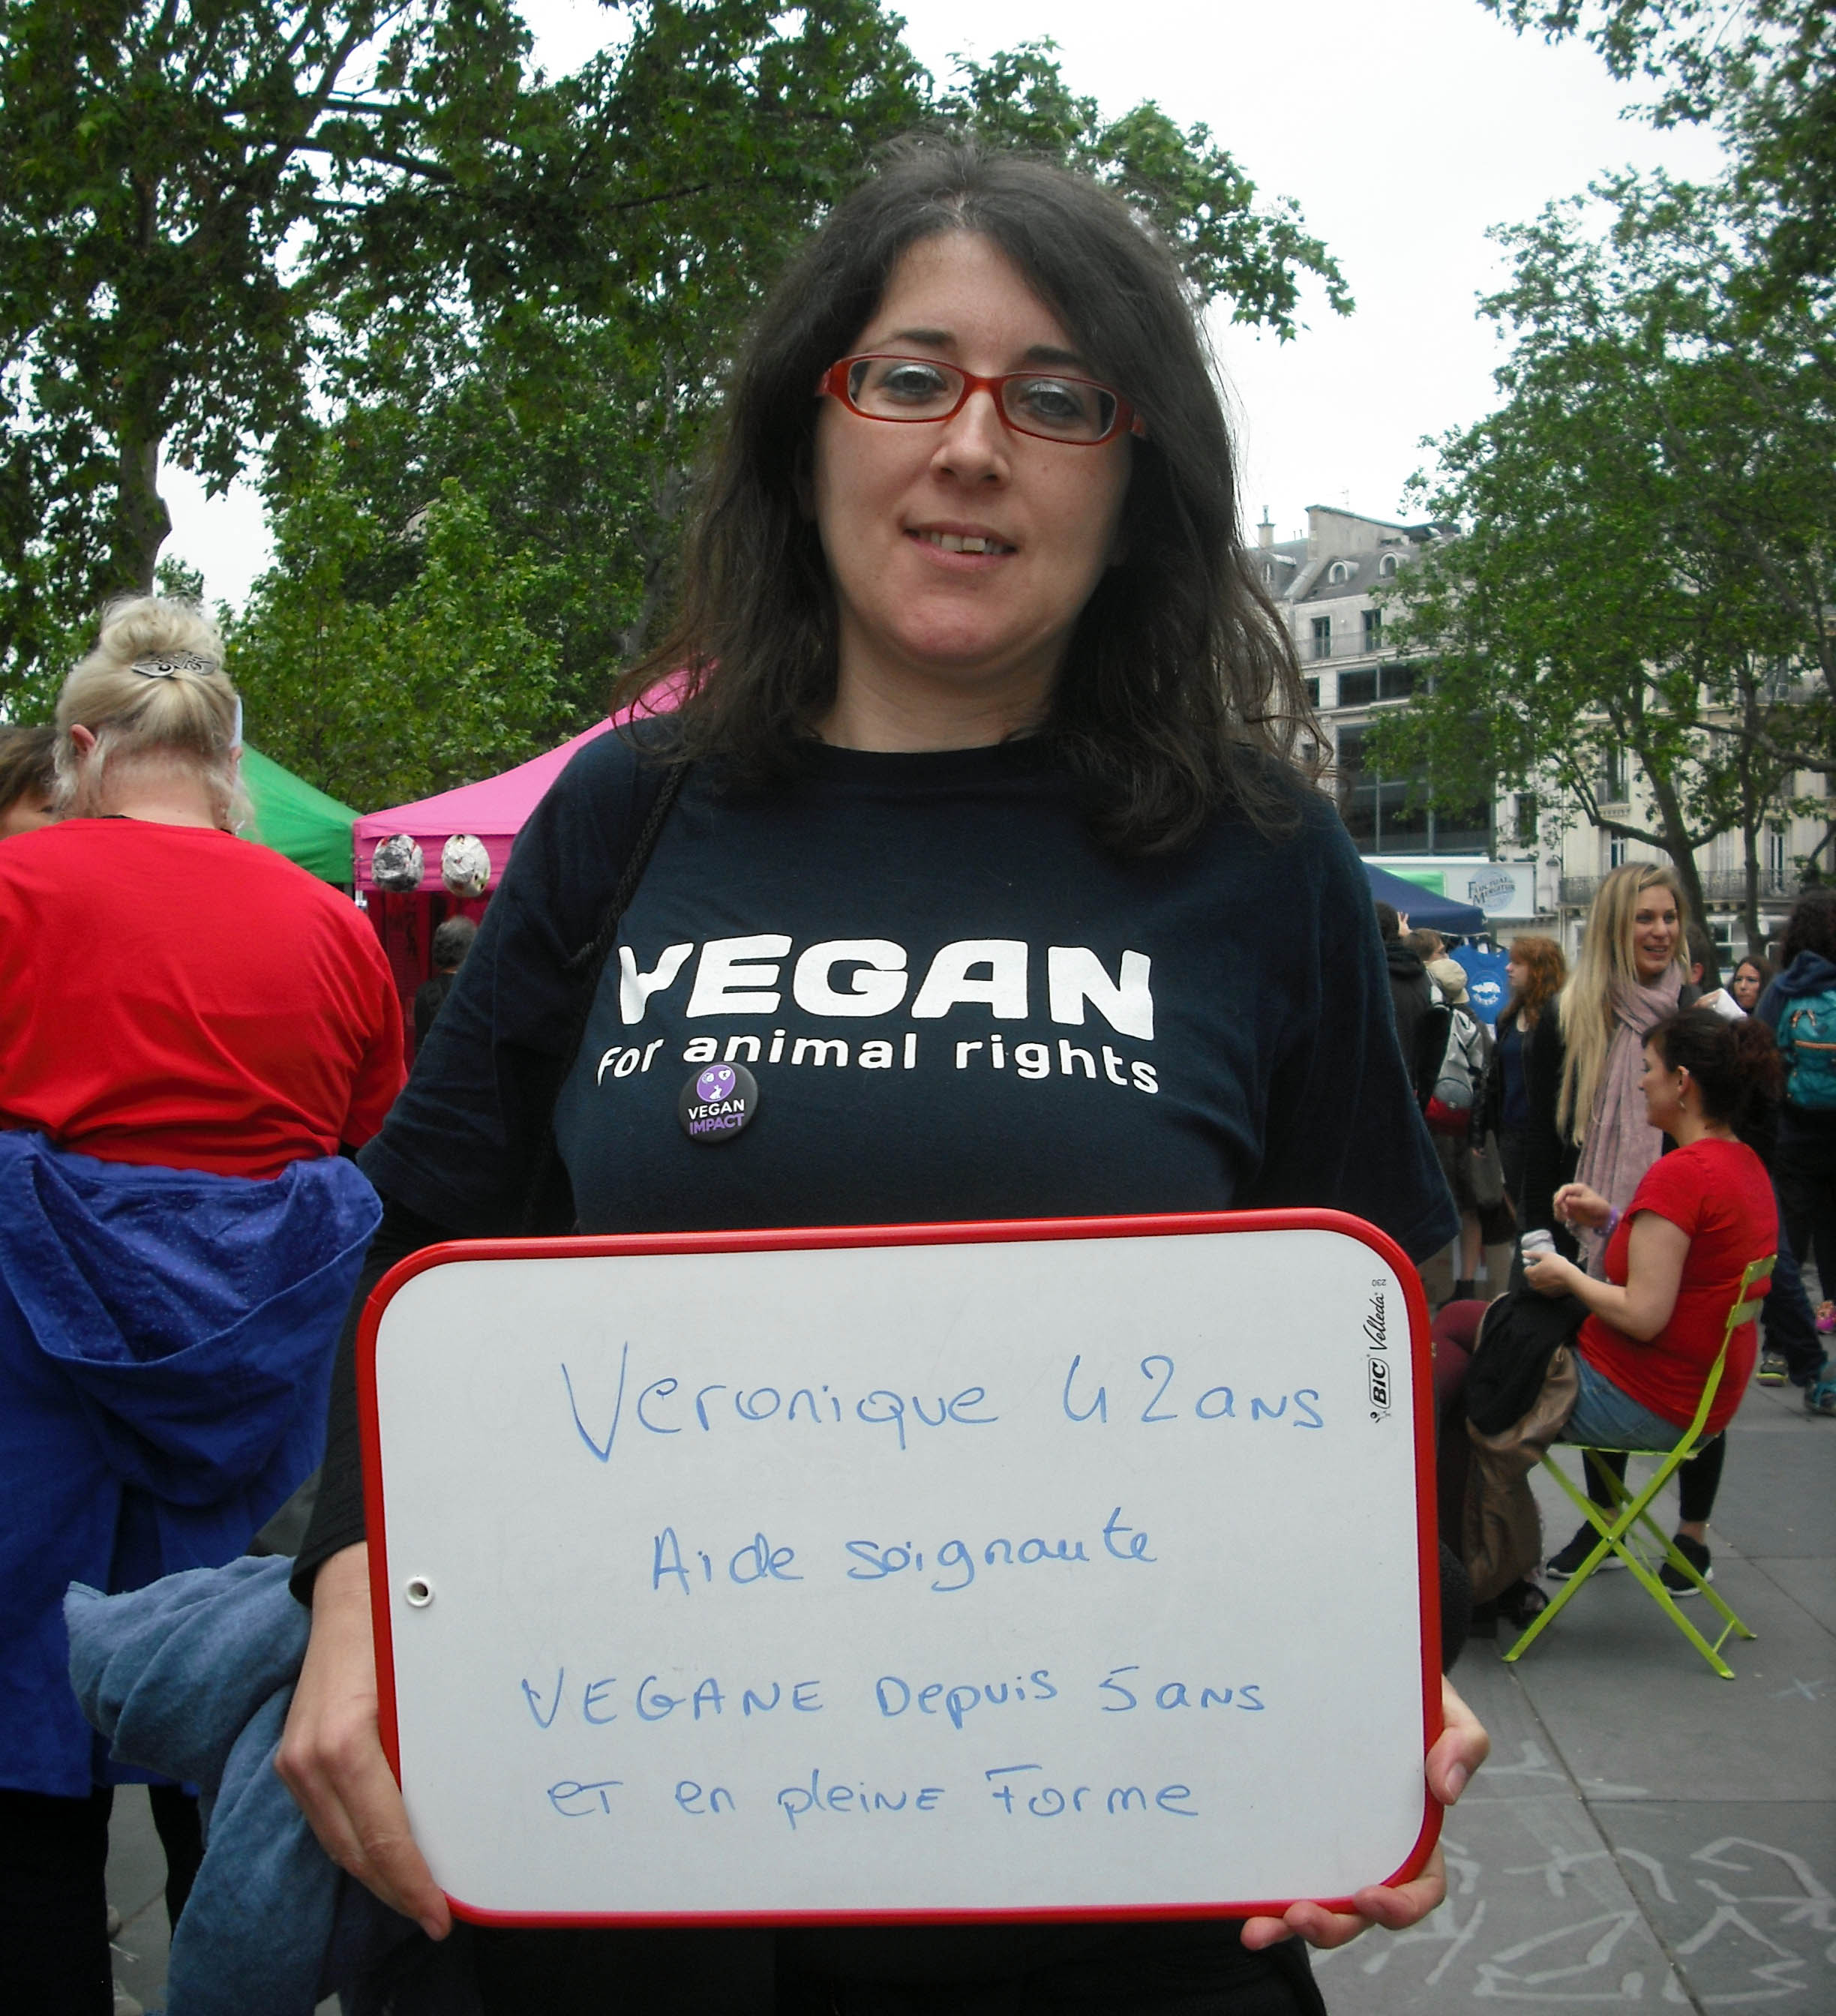 FLUCTUAT
MERGITUR
VEGAN
For animal rights
VEGAN
IMPACT
BIC Velleda 230
Veronique 42 ans
Aide soignante
VEGANE Depuis 5 ans
et en pleine Forme